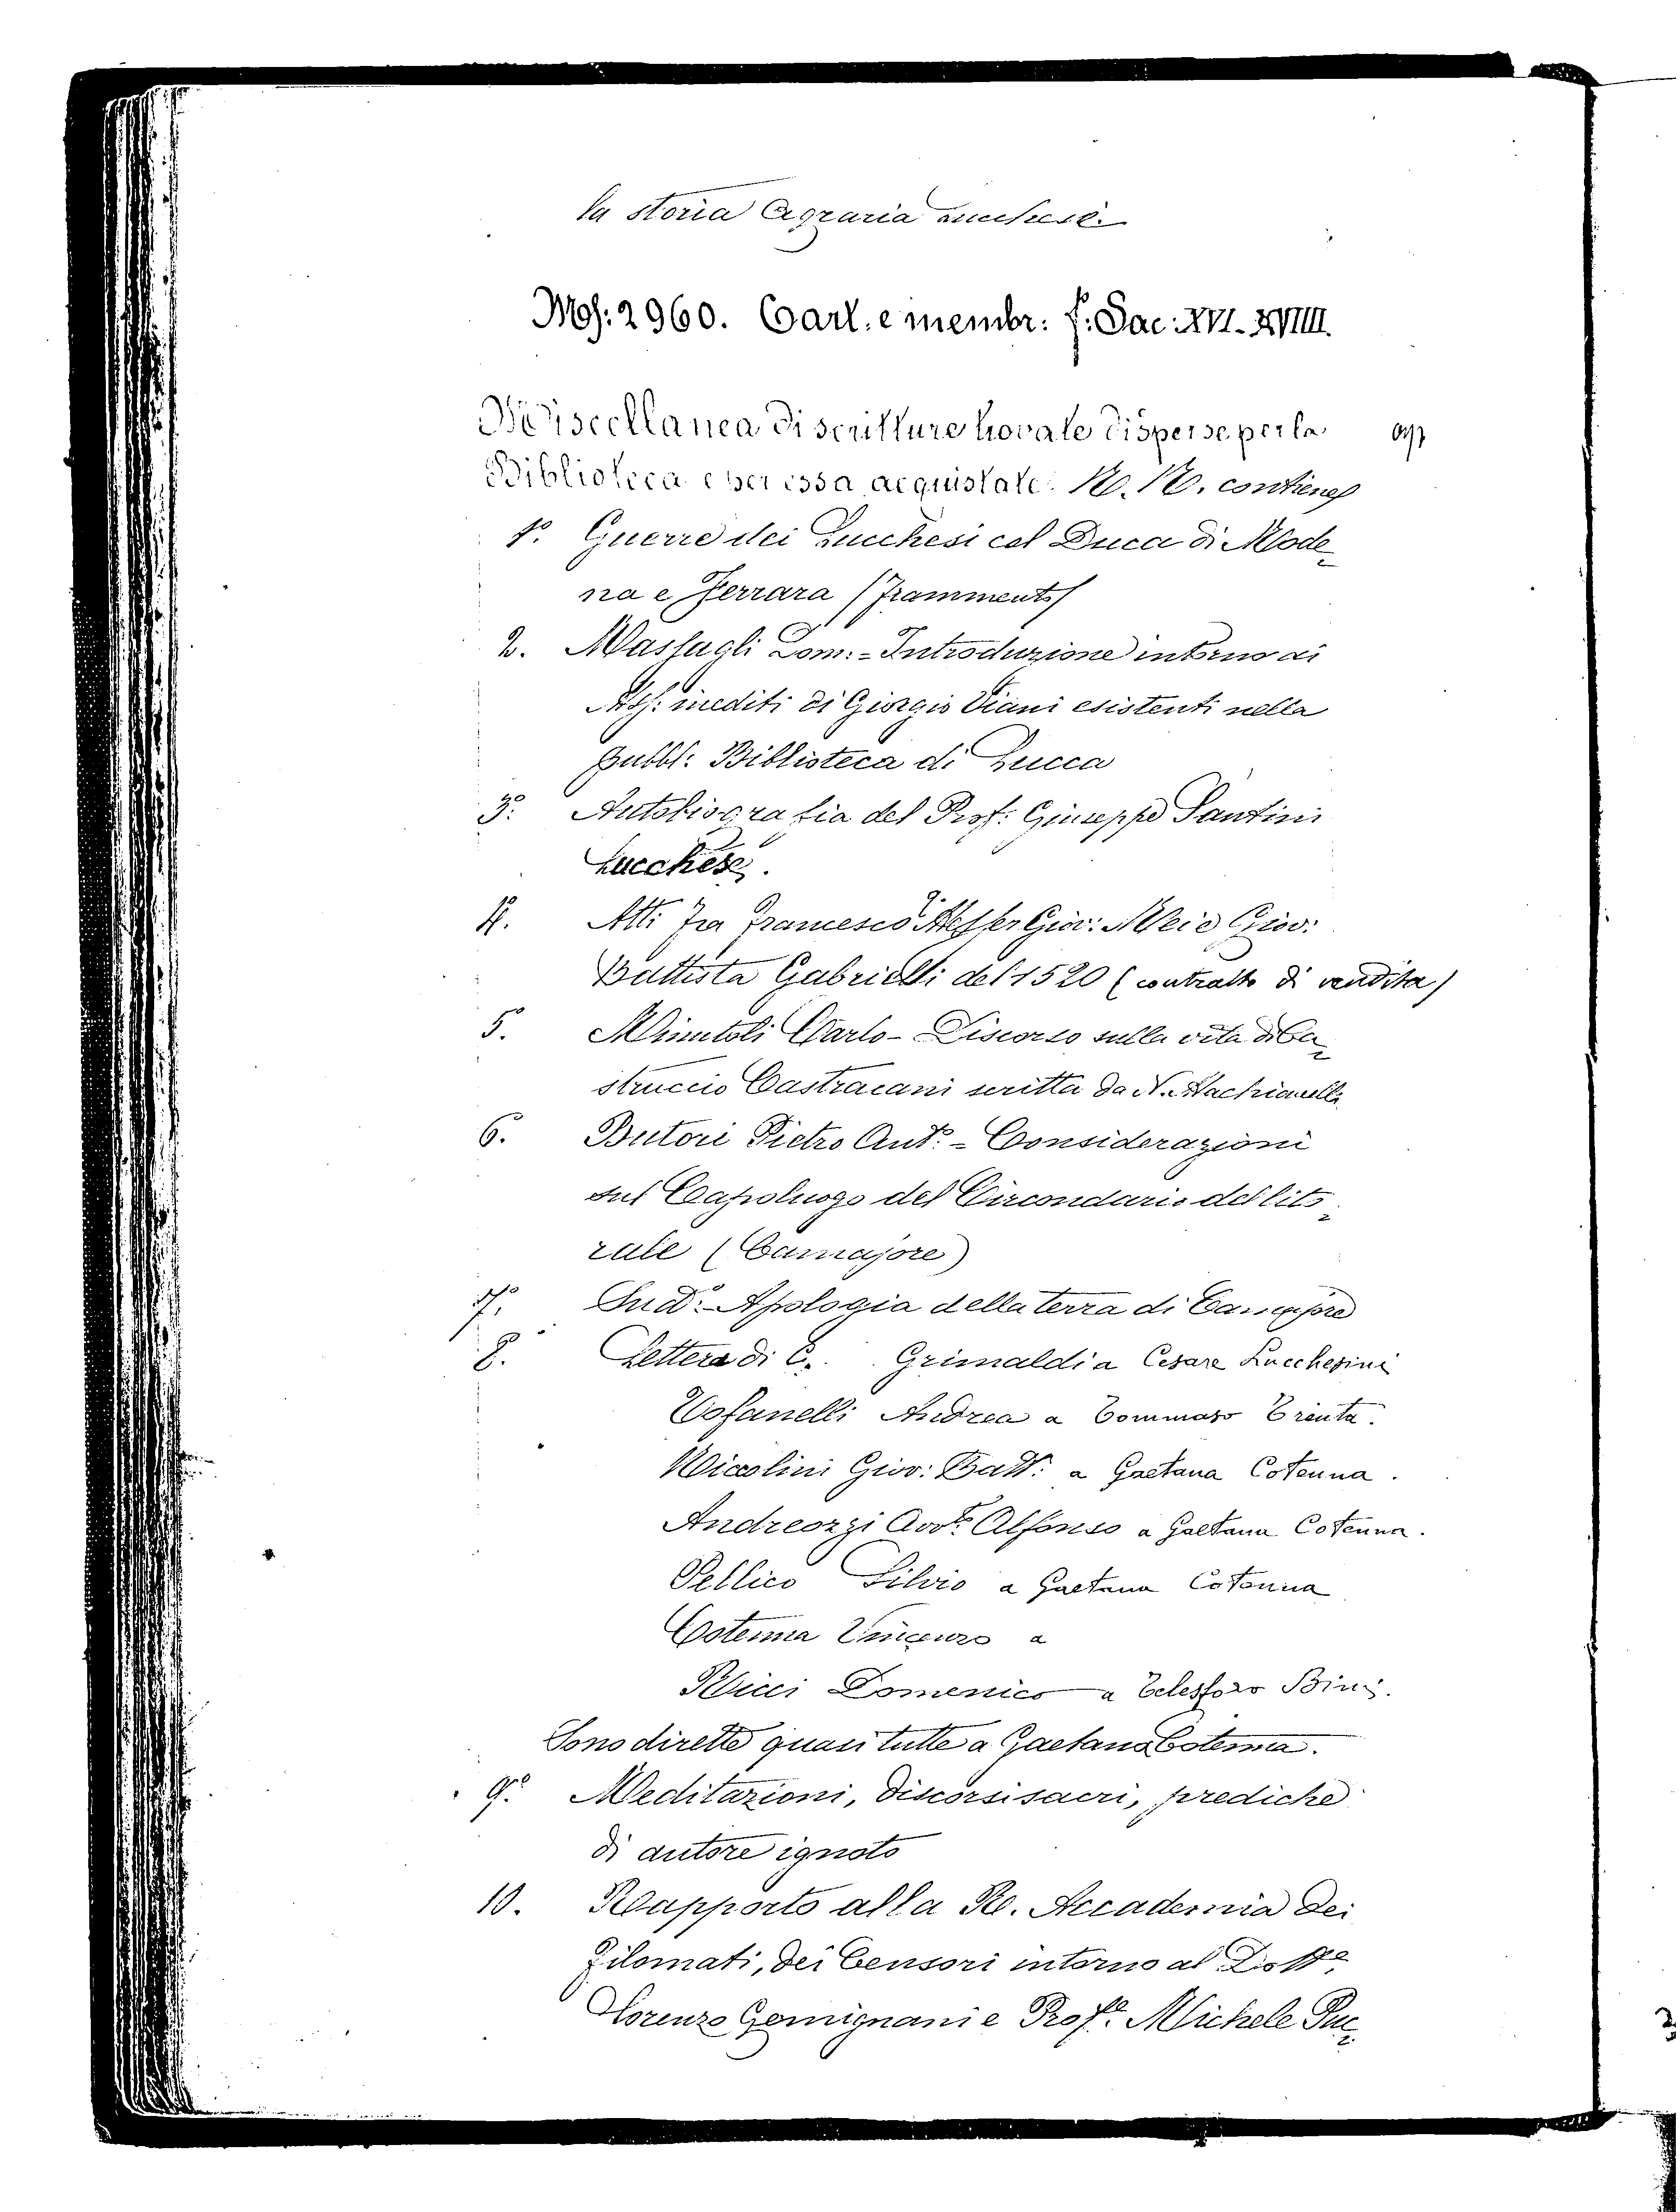 la storia Agraria lucchese.
Ms: 2960. Cart. e membr: f: Sac: XVI-XVIIII.
Miscellanea di scritture trovate disperse per la
Biblioteca e per essa acquistate. N. N. contiene
1º. Guerre dei Lucchesi col Duca di Mode_
na e Ferrara (Frammento)
2. Massagli Dom: - Introduzione intorno ai
Mss: inediti di Giorgio Viani esistenti nella
Pubbl: Biblioteca di Lucca
3º. Autobiografia del Prof: Giuseppe Santini
Lucchese.
4º. Atti Fra Francesco Gio: Mei e Giov:
Battista Gabrielli del 1520 (contratto di vendita)
5º. Minutoli Carlo - Discorso sulla vita di Ca_
struccio Castracani scritta da N. Machiavelli
6º. Butori Pietro Antº. - Considerazioni
sul Capoluogo del Circondario del lito_
rale (Camajore)
7º. Sudº: - Apologia della terra di Camajore
8º. Lettere di C. Grimaldi a Cesare Lucchesini
Tofanelli Andrea a Tommaso Trenta.
Niccolini Giov: Batt: a Gaetana Cotenna.
Andreozzi Avv.to Alfonso a Gaetana Cotenna.
Pellico Silvio a Gaetana Cotenna
Cotenna Vincenzo a
Ricci Domenico a Telesforo Bini.
Sono dirette quasi tutte a Gaetana Cotenna.
9º. Meditazioni, discorsi sacri, prediche
di autore ignoto
10. Rapporto alla R. Accademia dei
Filomati, dei Censori intorno al Dott.e
Lorenzo Gemignani e Prof.e Michele Puc_